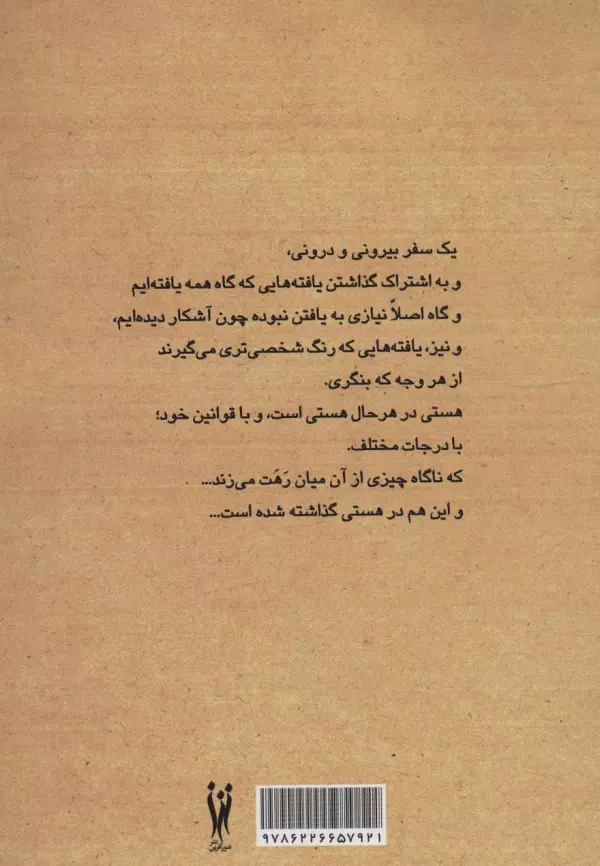 یک سفر بیرونی و درونی،
و به اشتراک گذاشتن یافته‌هایی که گاه همه یافته‌ایم
و گاه اصلاً نیازی به یافتن نبوده چون آشکار دیده‌ایم،
و نیز، یافته‌هایی که رنگ شخصی‌تری می‌گیرند
از هر وجه که بنگری.
هستی در هرحال هستی است، و با قوانین خود؛
با درجات مختلف.
که ناگاه چیزی از آن میان رَهَت می‌زند...
و این هم در هستی گذاشته شده است...
۹۷۸۶۲۲۶۶۵۷۹۲۱